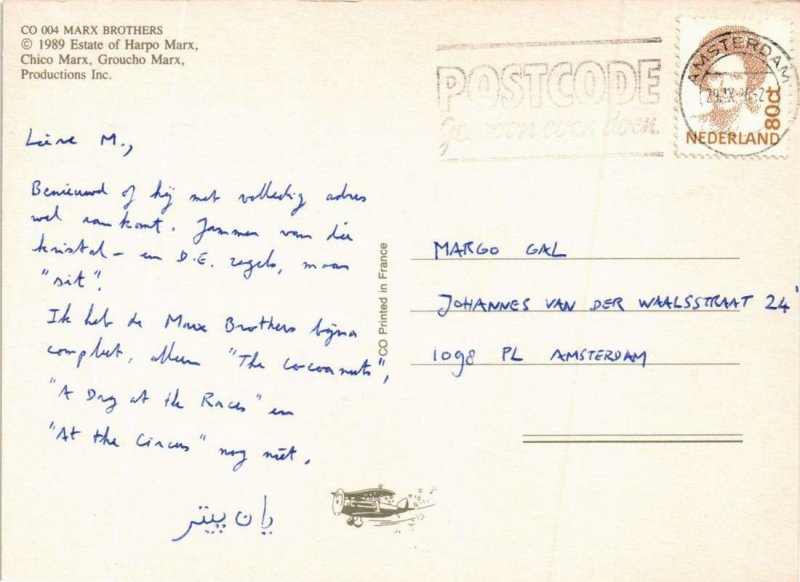 CO 004 MARX BROTHERS
© 1989 Estate of Harpo Marx,
Chico Marx, Groucho Marx,
Productions Inc.
POSTCODE
Gewoon even doen.
AMSTERDAM
80ct
NEDERLAND
Lieve M.,
Benieuwd of hij met volledig adres
wel aankomt. Jammer van die
kristal- en D.E. zegels, maar
"sit".
Ik heb de Marx Brothers bijna
compleet, alleen "The Cocoanuts",
"A Day at the Races" en
"At the Circus" nog niet.
يان پيتر
CO Printed in France
MARGO GAL
JOHANNES VAN DER WAALSSTRAAT 24'
1098 PL AMSTERDAM